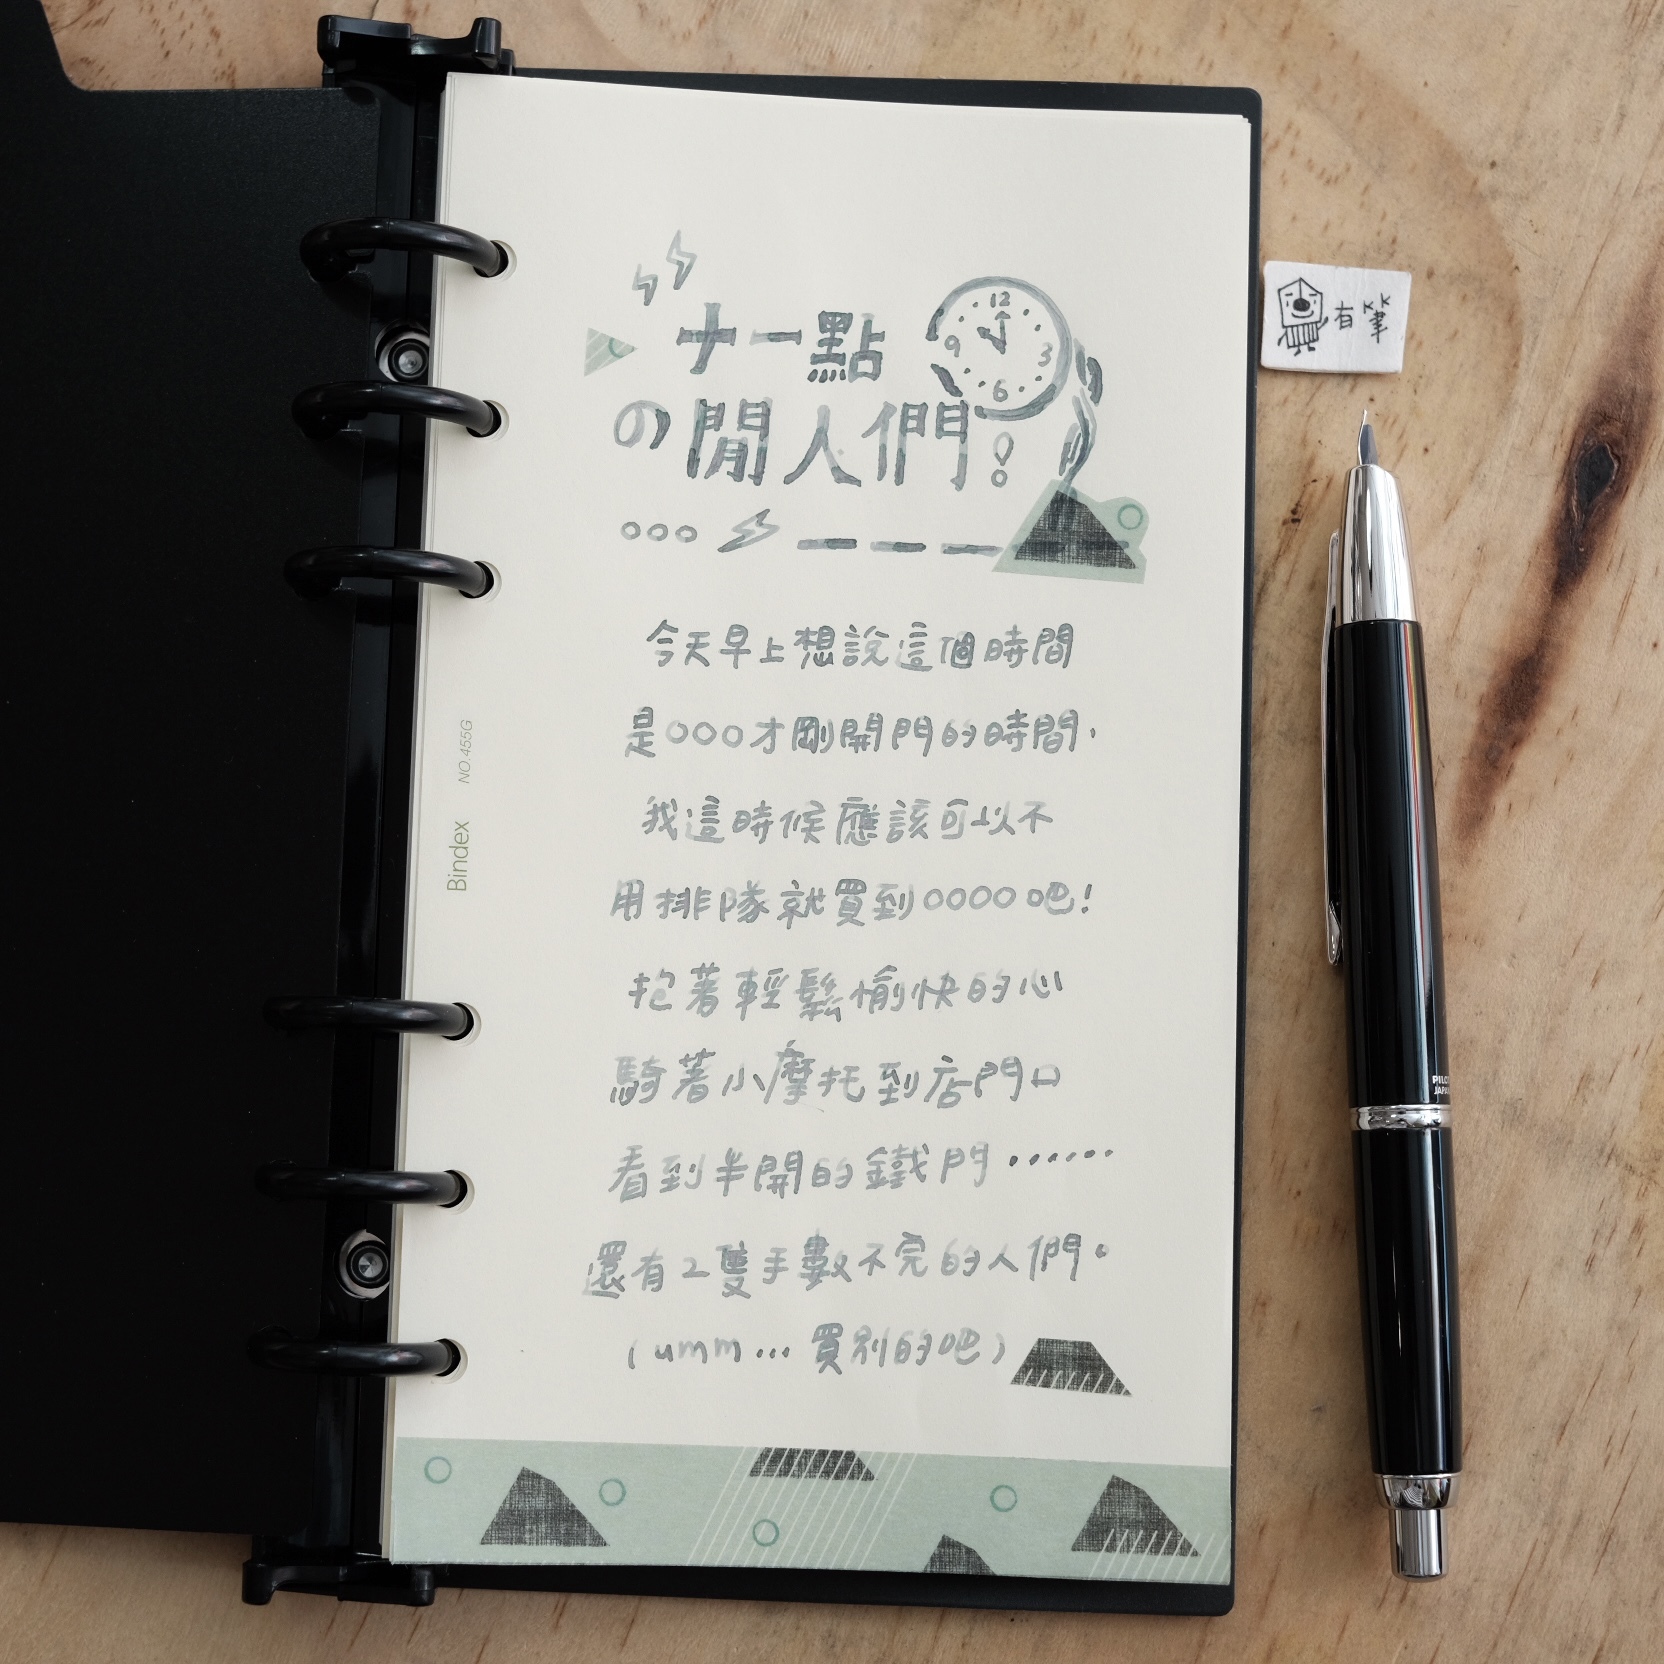 十一點
の閒人們!
12
9
3
6
今天早上想說這個時間
是○○○才剛開門的時間,
我這時候應該可以不
用排隊就買到○○○○吧!
抱著輕鬆愉快的心
騎著小摩托到店門口
看到半開的鐵門……
還有2隻手數不完的人們。
(umm... 買別的吧)
Bindex NO.455G
有筆
PILOT
JAPAN